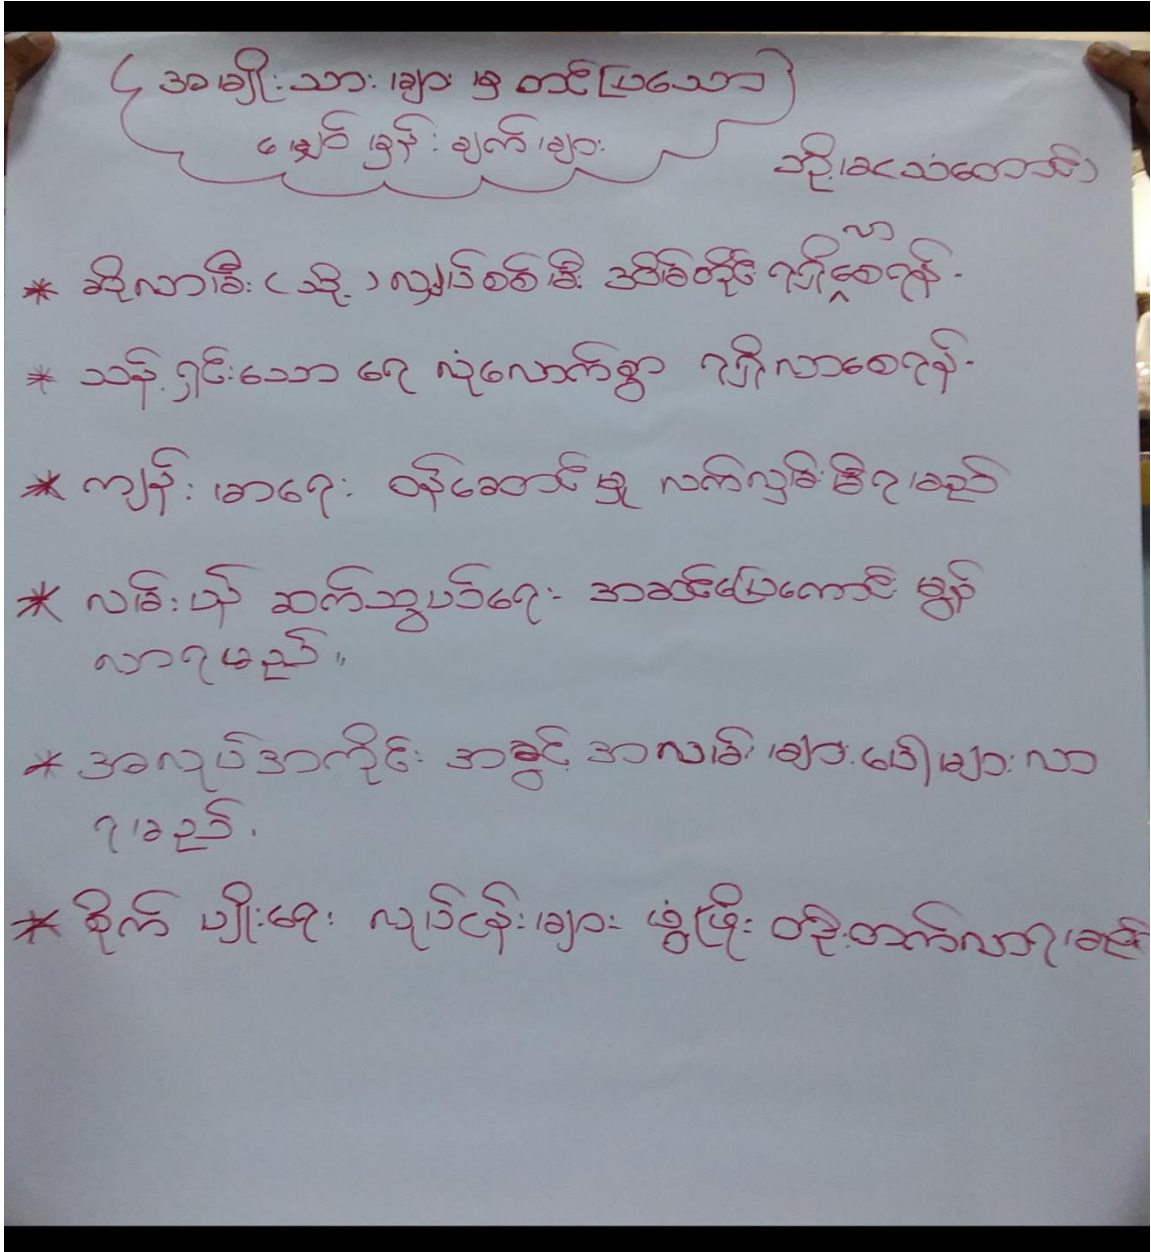 အမျိုးသားများမှ တင်ပြသော
မျှော်မှန်းချက်များ
* ဆိုလာမီး (သို့) လျှပ်စစ်မီး အိမ်တိုင်း ရရှိလာစေရန်-
* သန့်ရှင်းသော ရေ လုံလောက်စွာ ရရှိလာစေရန်-
* ကျန်းမာရေး ဝန်ဆောင်မှု လက်လှမ်းမီရမည်
* လမ်းပန်း ဆက်သွယ်ရေး အဆင်ပြေကောင်းမွန်
လာရမည်။
* အလုပ်အကိုင် အခွင့်အလမ်းများ ပေါများလာ
ရမည်.
* စိုက်ပျိုးရေး လုပ်ငန်းများ ဖွံ့ဖြိုး တိုးတက်လာရမည်